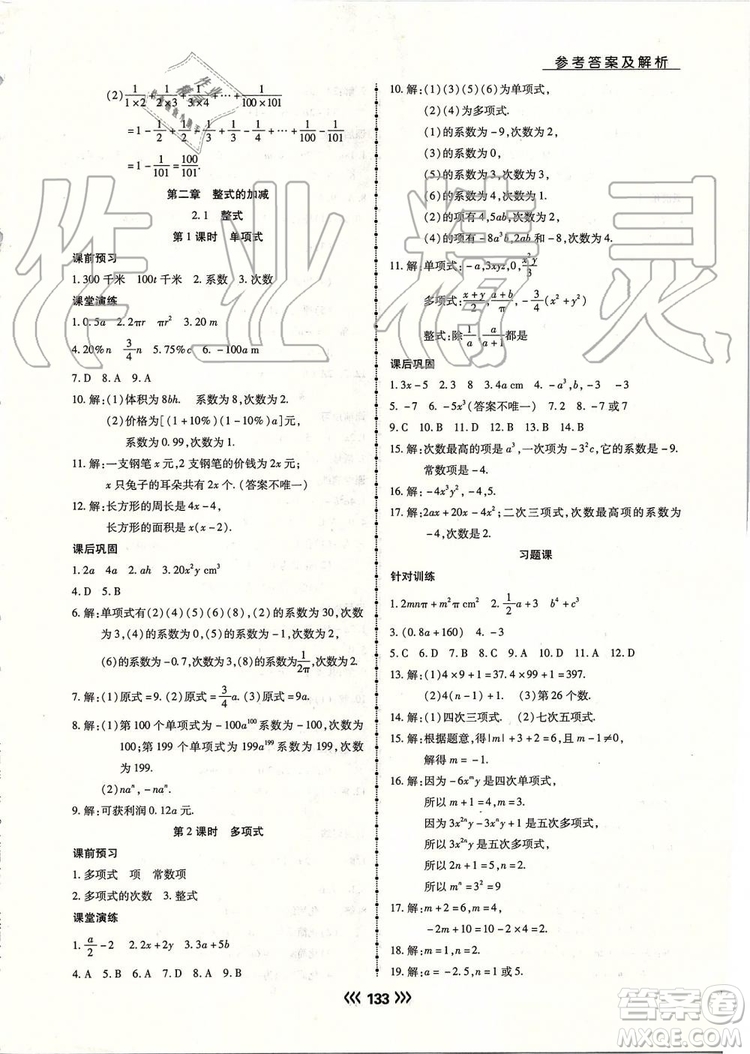 参考答案及解析
(2) 1/(1×2)+1/(2×3)+1/(3×4)+…+1/(100×101)
=1-1/2+1/2-1/3+1/3-1/4+…+1/100-1/101
=1-1/101=100/101.
第二章 整式的加减
2.1 整式
第1课时 单项式
课前预习
1.300千米 100t千米 2.系数 3.次数
课堂演练
1.0.5a 2.2πr πr² 3.20m
4.20%n 3/4 n 5.75%c 6.-100a
7.D 8.A 9.A
10.解:(1)体积为8bh. 系数为8,次数为2.
(2)价格为[(1+10%)(1-10%)a]元,
系数为0.99,次数为1.
11.解:一支钢笔x元,2支钢笔的价钱为2x元;
x只兔子的耳朵共有2x只.(答案不唯一)
12.解:长方形的周长是4x-4,
长方形的面积是x(x-2).
课后巩固
1.2a 4a 2.ah 3.20x² cm³
4.D 5.B
6.解:单项式有(2)(4)(5)(6)(8),(2)的系数为30,次数
为3,(4)的系数为1,次数为3,(5)的系数为1,次数为1,
(6)的系数为-0.7,次数为3,(8)的系数为1/2π,次数为2.
7.解:(1)原式=9.(2)原式=3/4 a.(3)原式=9a.
8.解:(1)第100个单项式为-100a¹⁰⁰的系数为-100,次数为
100;第199个单项式为199a¹⁹⁹的系数为199,次数
为199.
(2)naⁿ,-naⁿ.
9.解:可获利润0.12a元.
第2课时 多项式
课前预习
1.多项式 项 常数项
2.多项式的次数 3.整式
课堂演练
1.a/2-2 2.2x+2y 3.3a+5b
4.A 5.A 6.D 7.B 8.B 9.D
10.解:(1)(3)(5)(6)为单项式,
(2)(4)为多项式.
(1)的系数为-9,次数为2,
(3)的系数为0,
(5)的系数为3,次数为4,
(6)的系数为9,次数为3.
(2)的项有4,5ab,次数为2,
(4)的项有-8a³b,2ab和0,次数为4.
11.解:单项式:-a,3xyz,0,x²y/3
多项式:(x+y)/2,(a+b)/π,-3/4(x²+y²)
整式:除1/a,a/(a+1)都是
课后巩固
1.3x-5 2.3 3.4a -a³,b 4.3
5.-7 6.-5x³(答案不唯一) 7.2 8.-7或7
9.C 10.D 11.C 12.D 13.B 14.B
15.解:次数最高的项是a³,一次项为-3²c,它的系数是-9.
常数项是-4.
16.解:-4x³y²,-4x²y³.
17.解:2ax+20x-4x²;二次三项式,次数最高项的系数为
-4,次数是2.
习题课
针对训练
1.2mnπ+m²π cm² 2.1/2 a+3 b⁴+c³
3.(0.8a+160) 4.-3
5.C 6.D 7.B 8.B 9.C 10.A 11.A 12.D
13.解:(1)4×9+1=37.4×99+1=397.
(2)4(n-1)+1.(3)第26个数.
14.解:(1)四次三项式.(2)七次五项式.
15.解:根据题意,得|m|+2=3且m-1≠0,
解得m=-1.
16.解:因为-6xᵐy是四次单项式,
所以m+1=4,m=3,
因为3x²ⁿy-3xⁿy+1是五次多项式,
所以3x²ⁿy是五次单项式,
所以2n+1=5,n=2,
所以m²-n²=9-4=5.
17.解:m+2=4,m=2,
-2m+10=-4+10=6.
18.解:-6.
19.解:a=-2.5,n=1或5.
133
作业精灵
答案圈